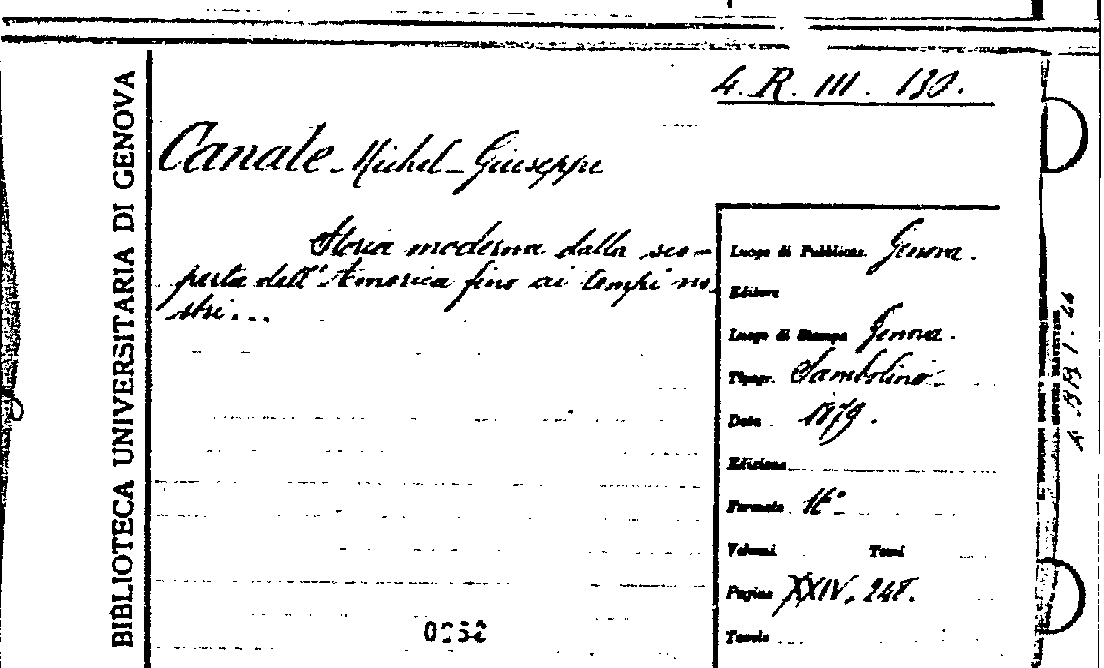 4. R. III. 130.
BIBLIOTECA UNIVERSITARIA DI GENOVA
Canale Michel-Giuseppe
Storia moderna dalla sco-
perta dell'America fino ai tempi no-
stri...
Luogo di Pubblicaz. Genova.
Editore
Luogo di Stampa Genova.
Tipogr. Sambolino
Data 1879.
Edizione
Formato 16°
Volumi Tomi
Pagine XXIV, 248.
Tavole